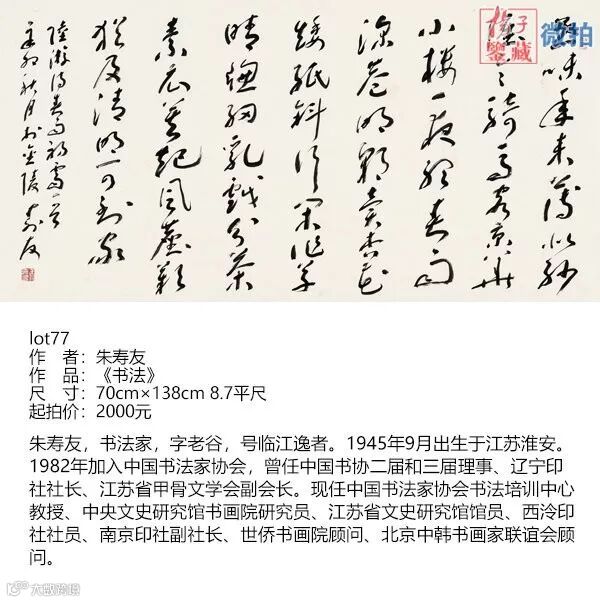 世味年来薄似紗
誰令騎馬客京華
小樓一夜聽春雨
深巷明朝賣杏花
矮紙斜行閑作草
晴窗細乳戲分茶
素衣莫起風塵歎
猶及清明可到家
陸游詩春雨初霽一首
辛卯秋月於金陵 壽友
揚子鑒藏
微拍
lot77
作 者：朱寿友
作 品：《书法》
尺 寸：70cm×138cm 8.7平尺
起拍价：2000元
朱寿友，书法家，字老谷，号临江逸者。1945年9月出生于江苏淮安。
1982年加入中国书法家协会，曾任中国书协二届和三届理事、辽宁印
社社长、江苏省甲骨文学会副会长。现任中国书法家协会书法培训中心
教授、中央文史研究馆书画院研究员、江苏省文史研究馆馆员、西泠印
社社员、南京印社副社长、世侨书画院顾问、北京中韩书画家联谊会顾
问。
大数跨境